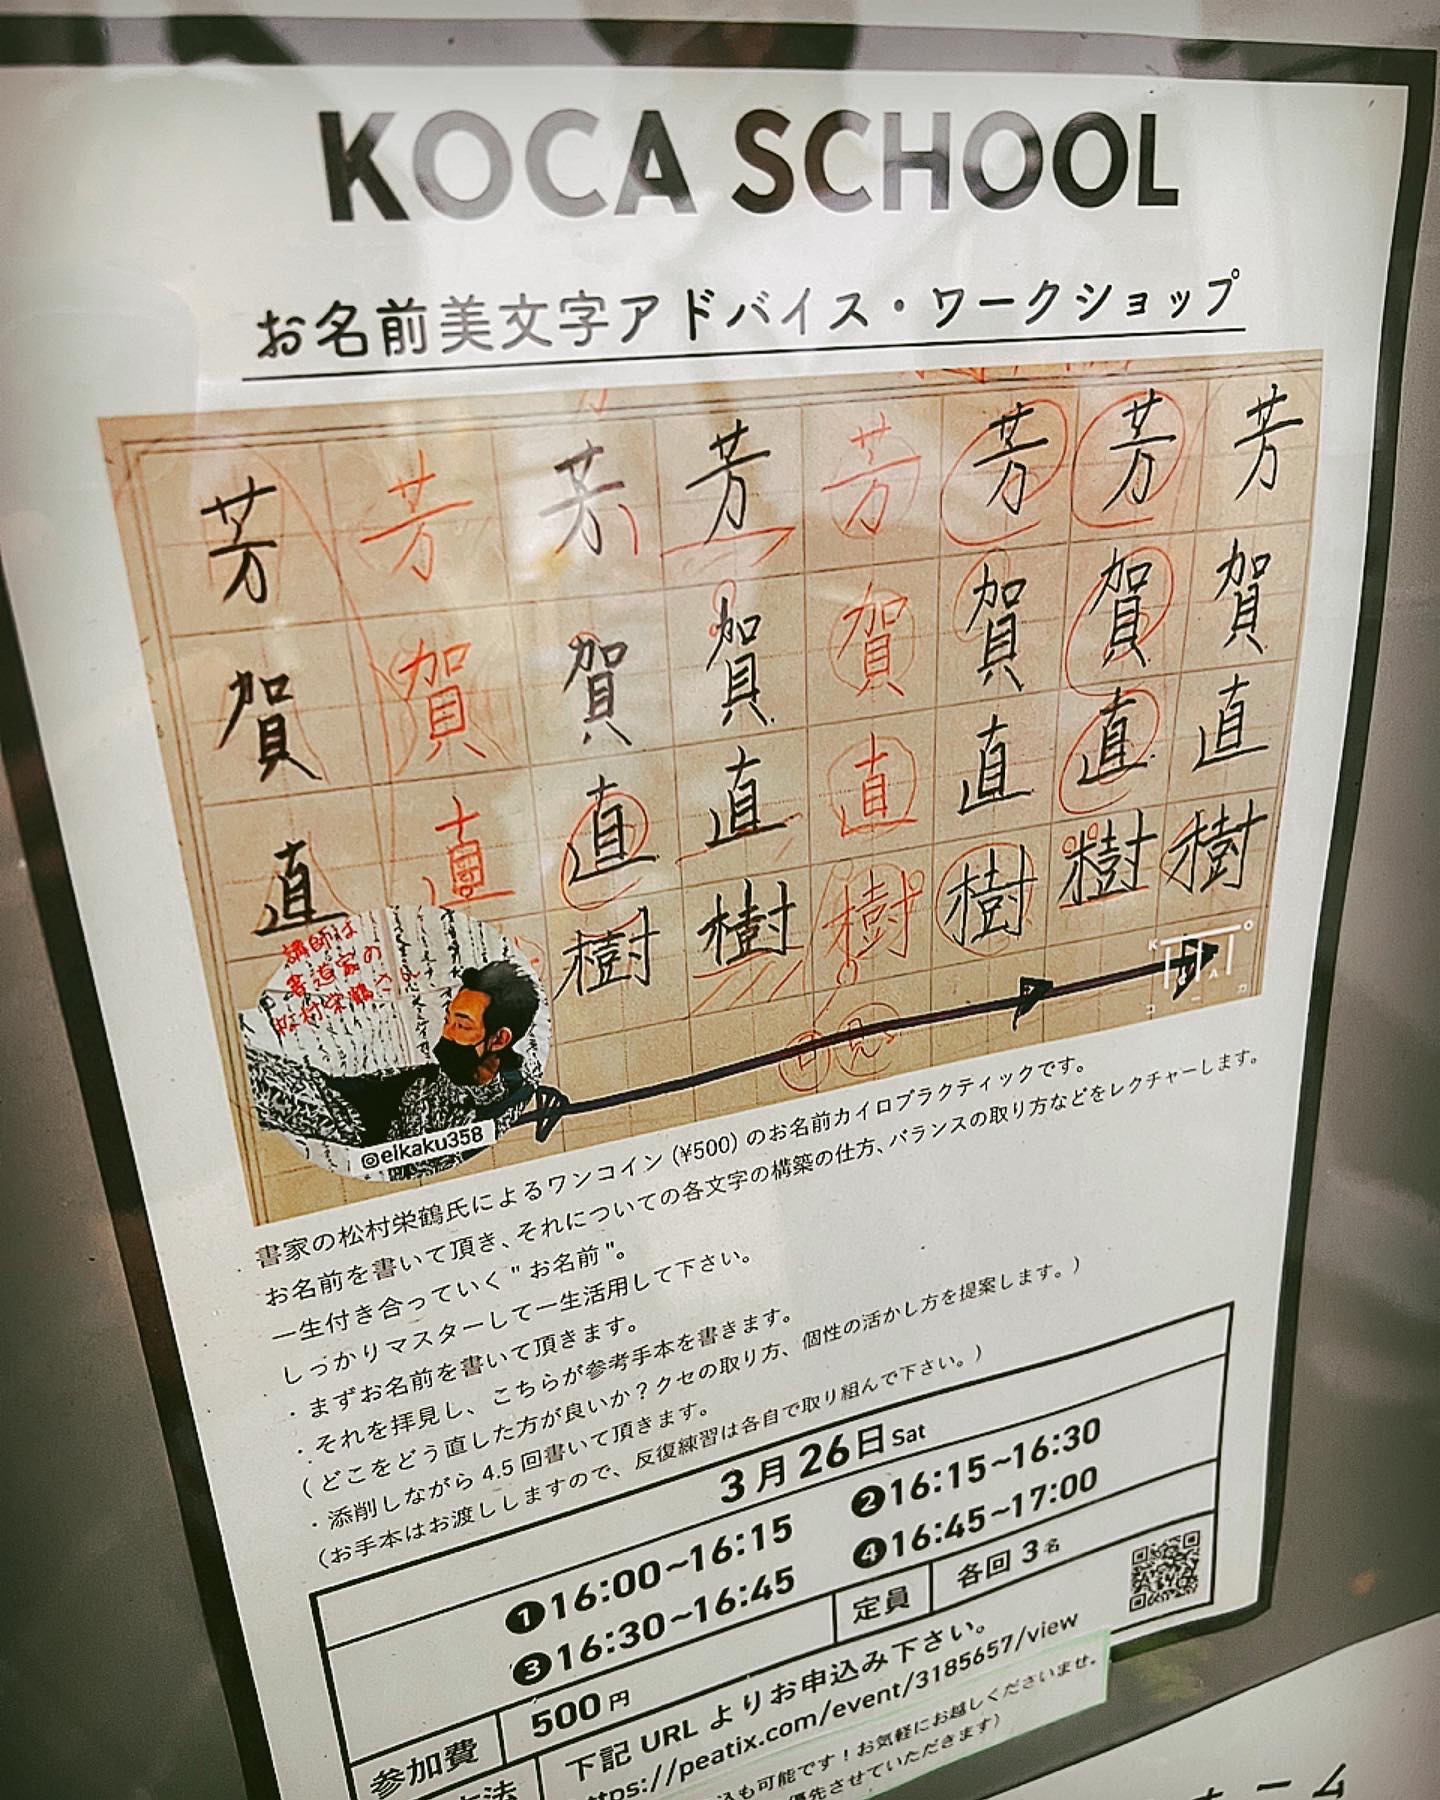 KOCA SCHOOL
お名前美文字アドバイス・ワークショップ
芳 芳 芳 芳 芳 芳 芳 芳
賀 賀 賀 賀 賀 賀 賀 賀
直 直 直 直 直 直 直 直
樹 樹 樹 樹 樹 樹
講師は
書道家の
松村栄鶴さん
@eikaku358
K O
C A
コーカ
書家の松村栄鶴氏によるワンコイン(¥500)のお名前カイロプラクティックです。
お名前を書いて頂き、それについての各文字の構築の仕方、バランスの取り方などをレクチャーします。
一生付き合っていく"お名前"。
しっかりマスターして一生活用して下さい。
・まずお名前を書いて頂きます。
・それを拝見し、こちらが参考手本を書きます。
(どこをどう直した方が良いか?クセの取り方、個性の活かし方を提案します。)
・添削しながら4.5回書いて頂きます。
(お手本はお渡ししますので、反復練習は各自で取り組んで下さい。)
3月26日Sat
❶16:00~16:15 ❷16:15~16:30
❸16:30~16:45 ❹16:45~17:00
参加費 500円 定員 各回3名
下記URLよりお申込み下さい。
ttps://peatix.com/event/3185657/view
も可能です!お気軽にお越しくださいませ。
優先させていただきます)